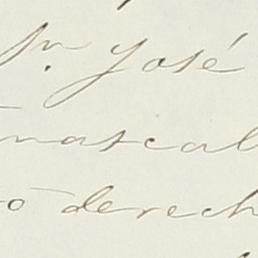 Sr. José
mascal
o derech